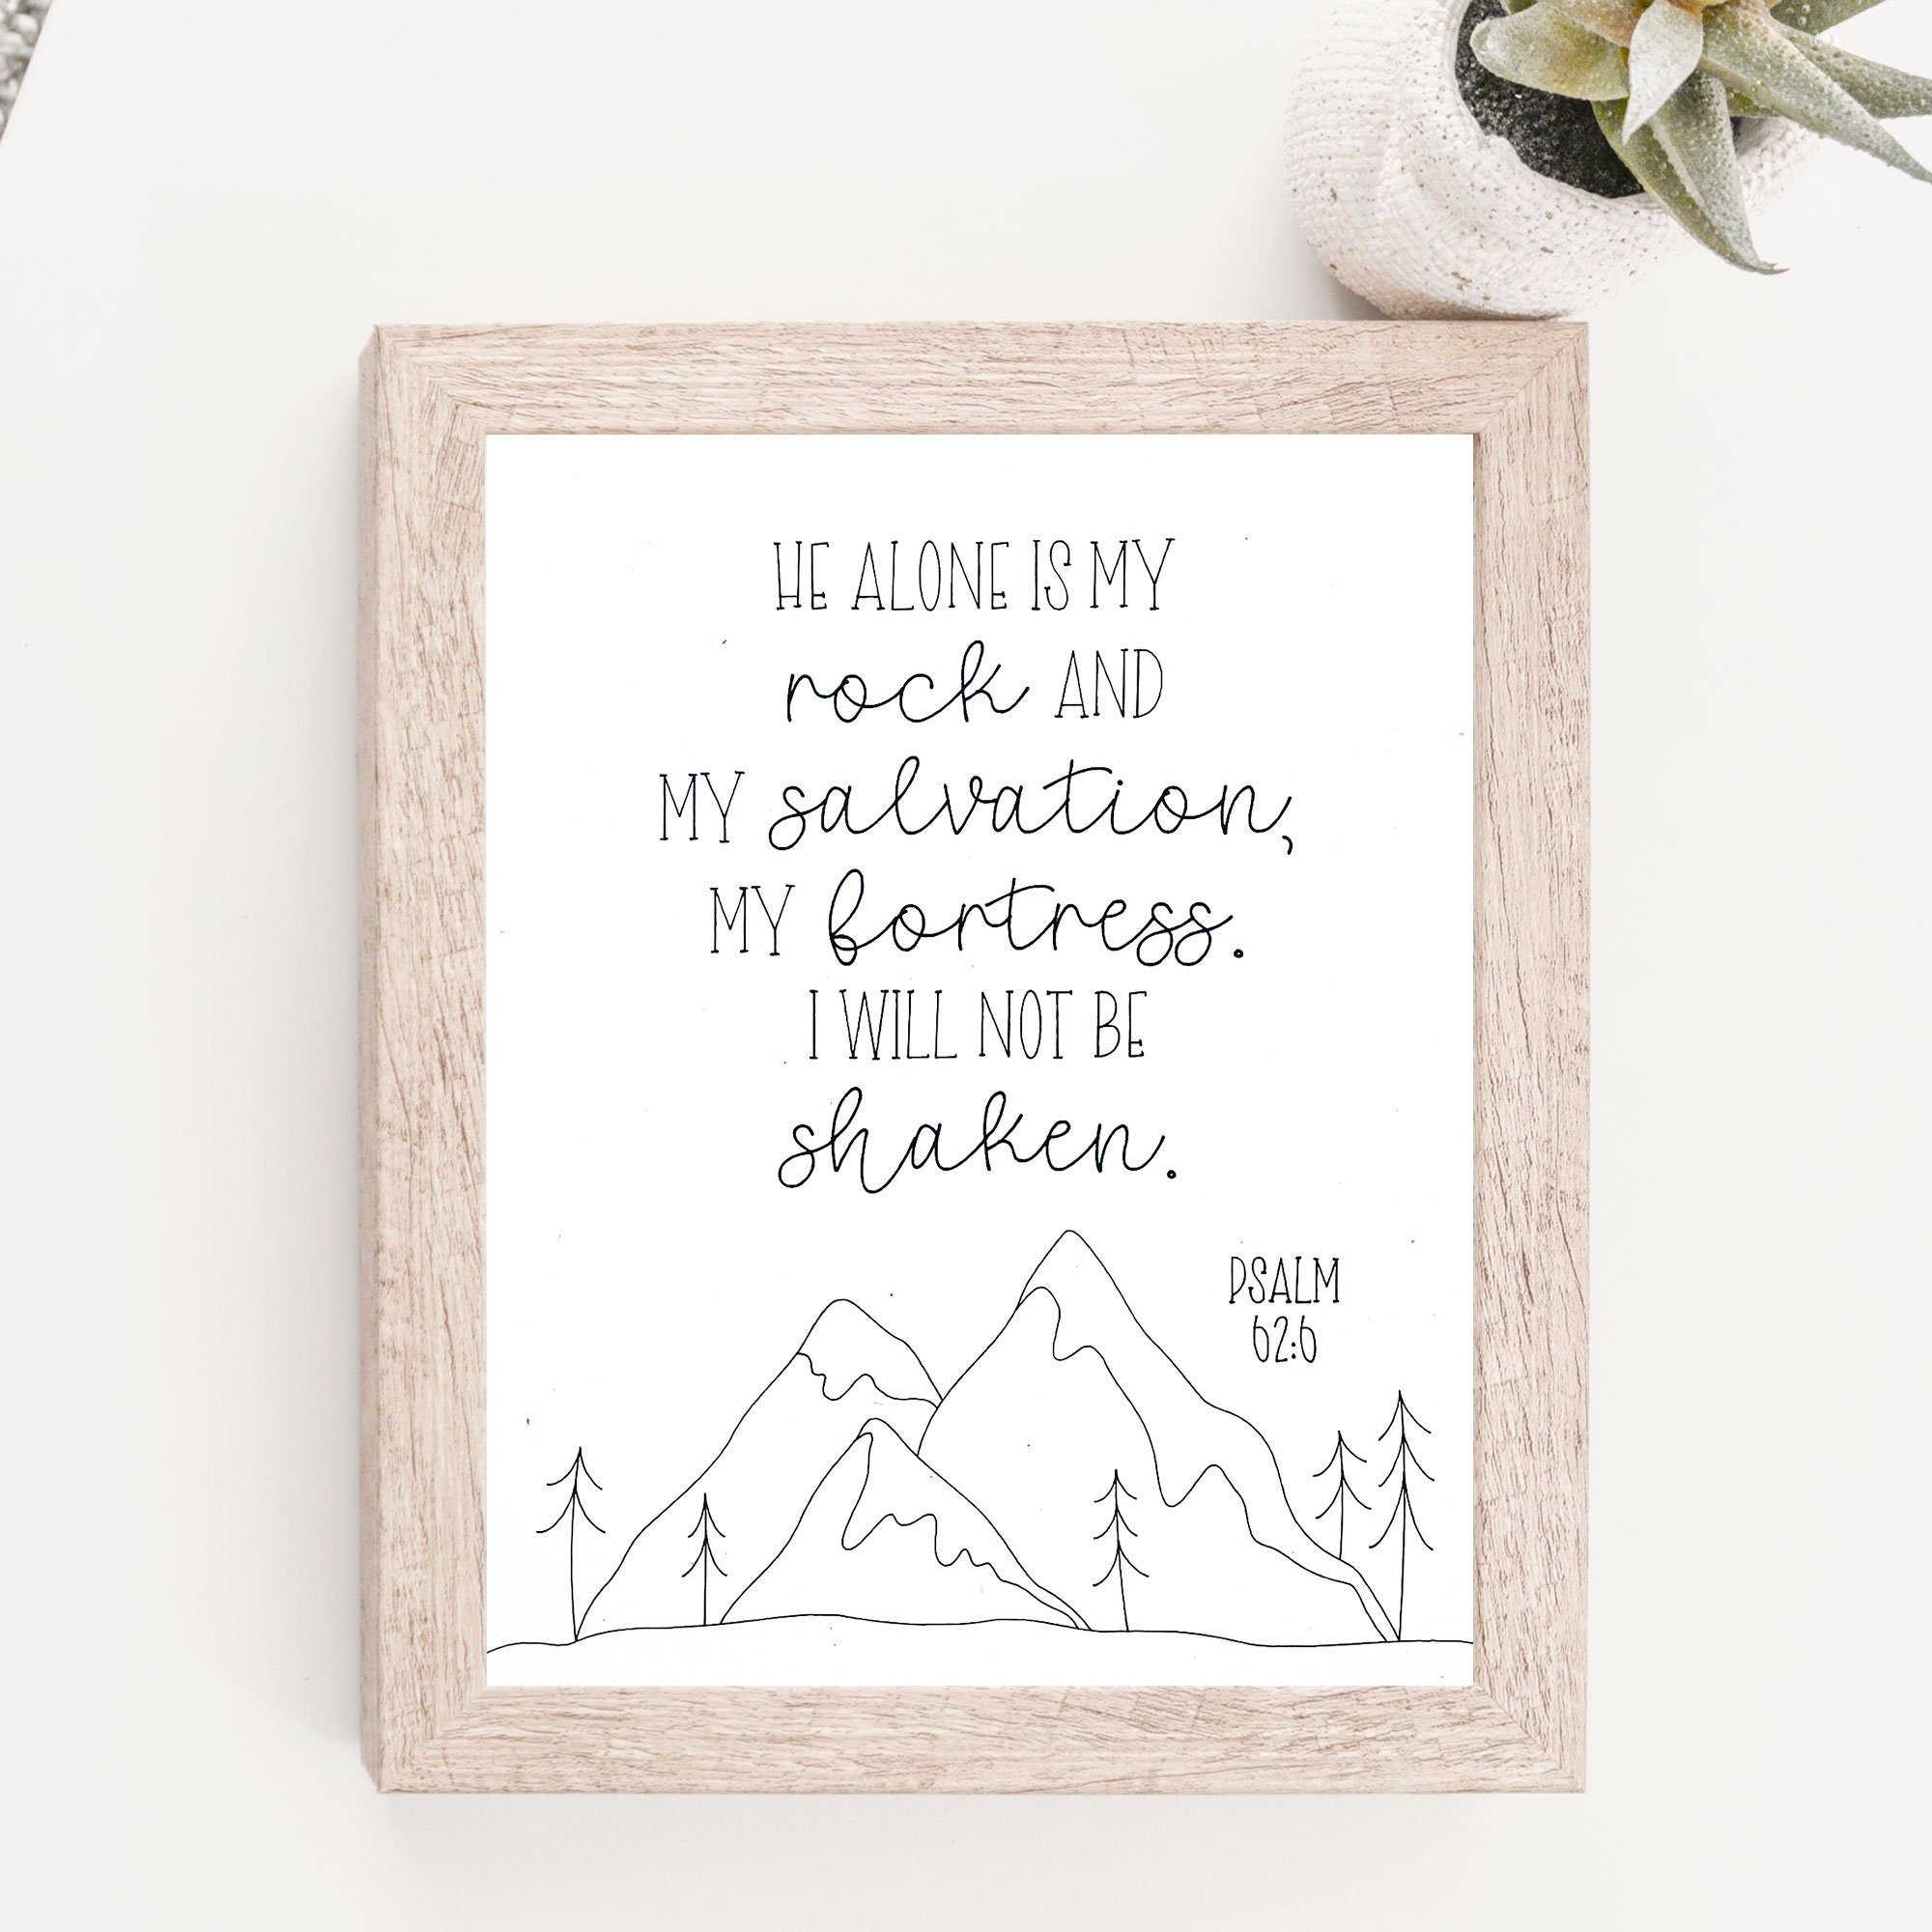 HE ALONE IS MY
rock AND
MY salvation,
MY fortress.
I WILL NOT BE
shaken.
PSALM
62:6